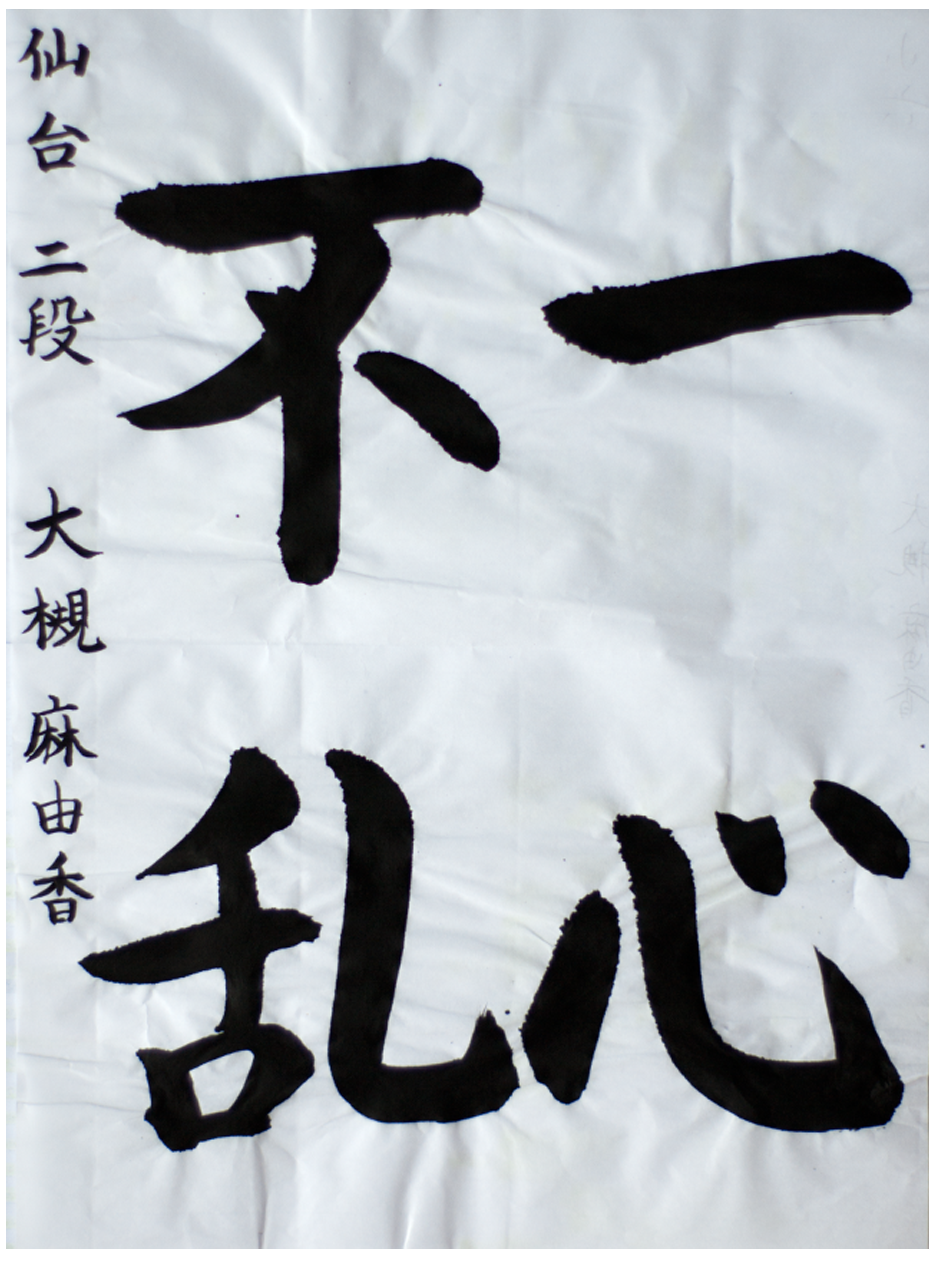 一心
不乱
仙台 二段 大槻 麻由香